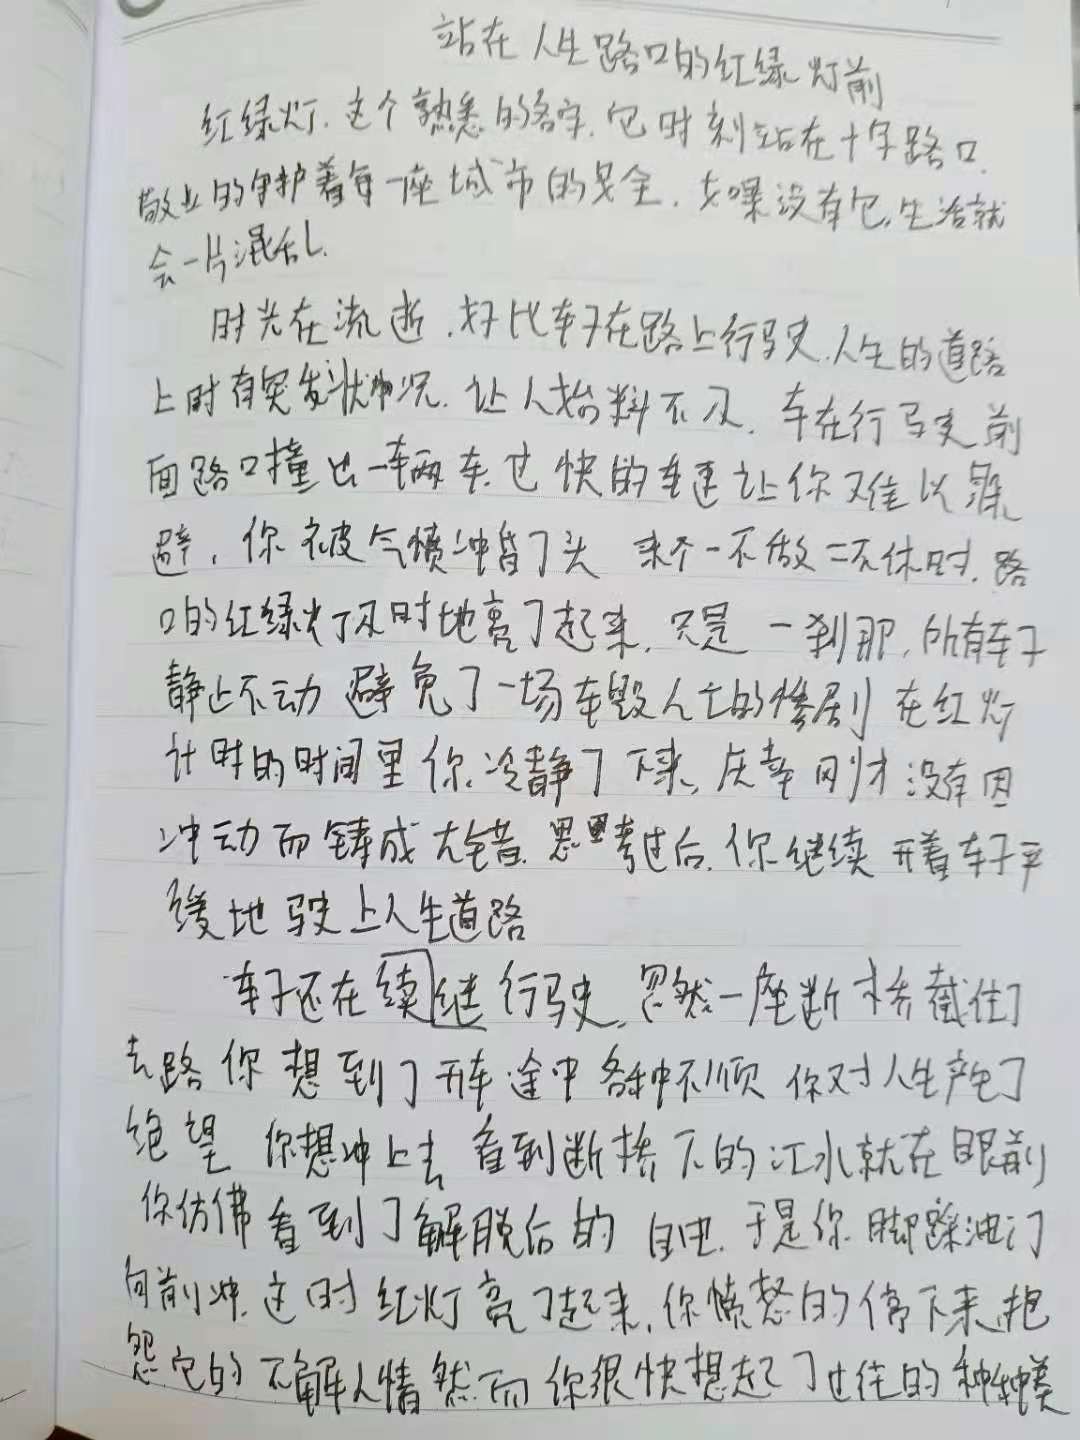 站在人生路口的红绿灯前
红绿灯.这个熟悉的名字.它时刻站在十字路口.
敬业的守护着每一座城市的安全.如果没有它,生活就
会一片混乱.
时光在流逝.好比车子在路上行驶.人生的道路
上时有突发状况.让人始料不及.车在行驶前
面路口撞出一辆车.过快的车速让你难以躲
避,你被气愤冲昏了头 来个一不做二不休时.路
口的红绿灯及时地亮了起来.只是一刹那,所有车子
静止不动 避免了一场车毁人亡的惨剧 在红灯
计时的时间里你冷静了下来,庆幸刚才没有因
冲动而铸成大错.思考过后.你继续开着车子平
缓地驶上人生道路
车子还在续继行驶,忽然一座断桥截住了
去路 你想到了开车途中各种不顺 你对人生产生了
绝望 你想冲上去 看到断桥下的江水就在眼前
你仿佛看到了解脱后的自由.于是你脚踩油门
向前冲.这时红灯亮了起来,你愤怒的停下来,抱
怨它的不解人情然而你很快想起了过往的种种美